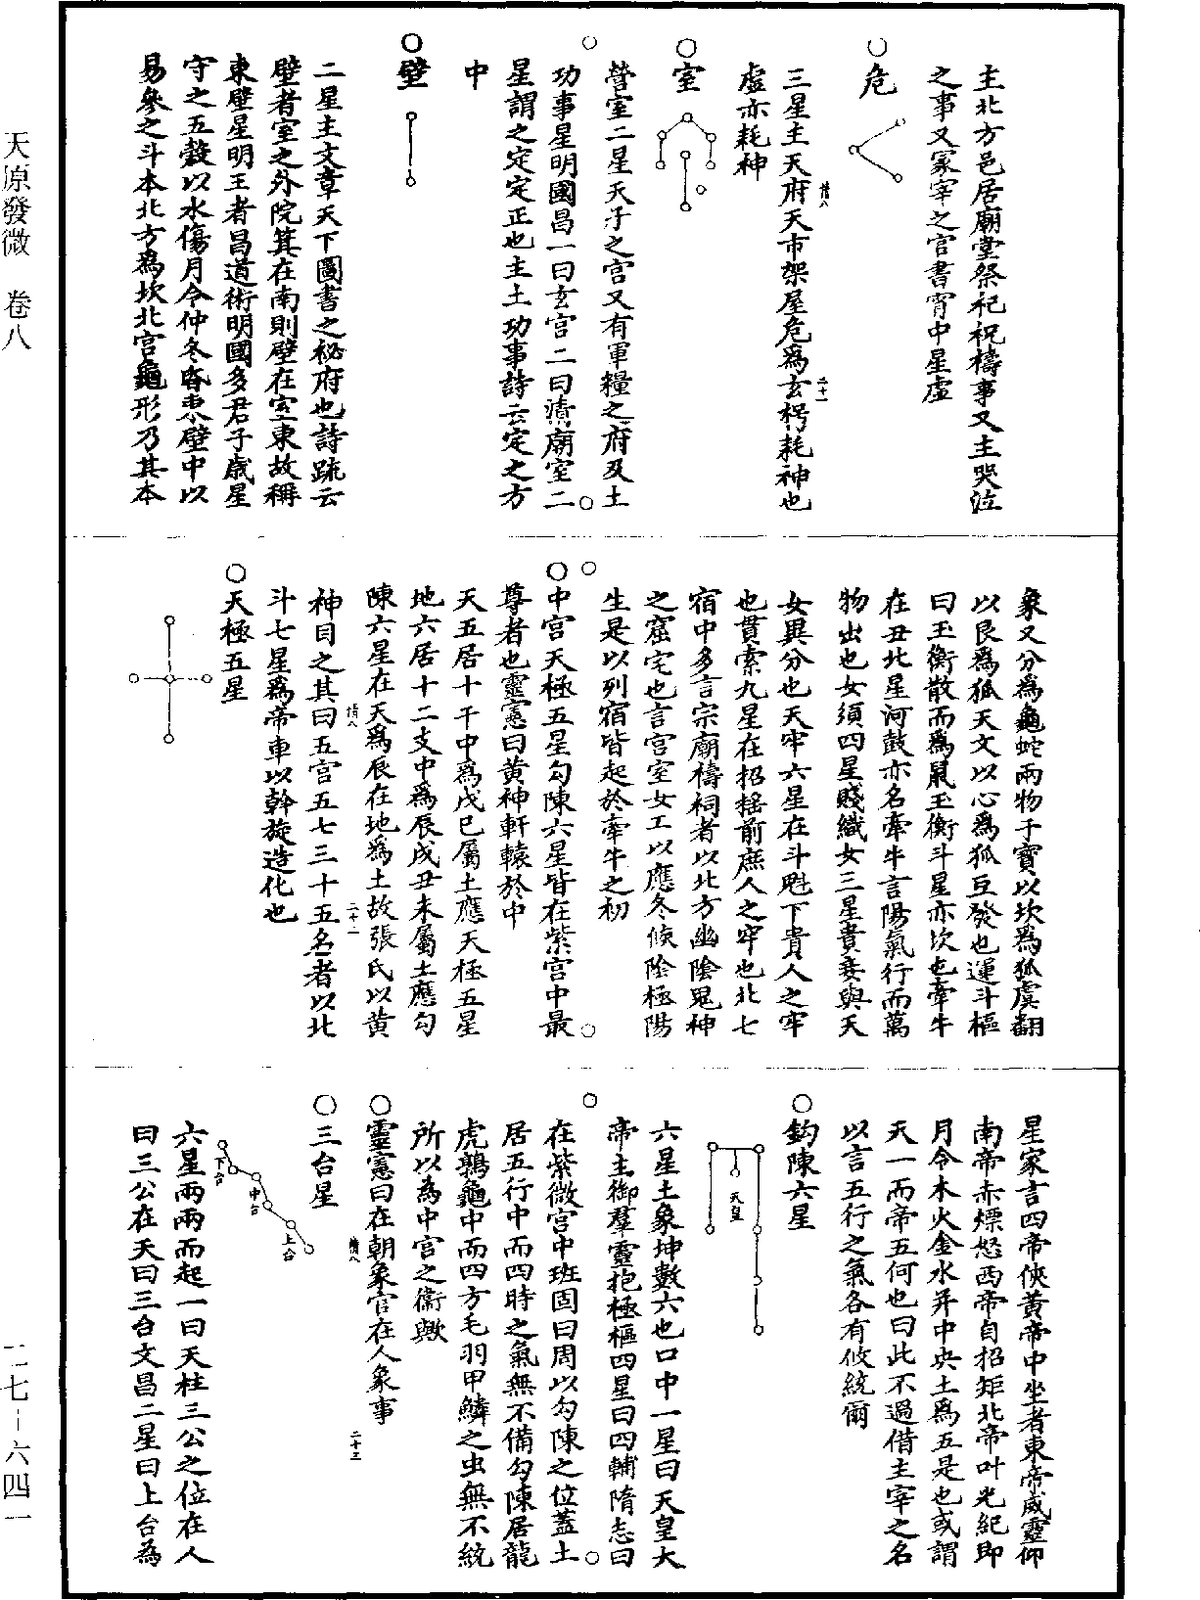 天原發微　卷八
主北方邑居廟堂祭祀祝禱事又主哭泣
之事又冢宰之官書宵中星虛
○危
三星主天府天市架屋危爲玄枵耗神也
虛亦耗神
○室
營室二星天子之宮又有軍糧之府及土
功事星明國昌一曰玄宮二曰清廟室二
星謂之定定正也主土功事詩云定之方
中
○壁
二星主文章天下圖書之祕府也詩疏云
壁者室之外院箕在南則壁在室東故稱
東壁星明王者昌道術明國多君子歲星
守之五穀以水傷月令仲冬昏東壁中以
易參之斗本北方爲坎北宮龜形乃其本
象又分爲龜蛇兩物子寶以坎爲狐虞翻
以艮爲狐天文以心爲狐豆發也運斗樞
曰玉衡散而爲鼠玉衡斗星亦坎也牽牛
在丑北星河鼓亦名牽牛言陽氣行而萬
物出也女須四星賤織女三星貴妾與天
女異分也天牢六星在斗魁下貴人之牢
也貫索九星在招搖前庶人之牢也北七
宿中多言宗廟禱祠者以北方幽陰鬼神
之窟宅也言宮室女工以應冬候陰極陽
生是以列宿皆起於牽牛之初
○中宮天極五星勾陳六星皆在紫宮中最
尊者也靈憲曰黃神軒轅於中
天五居十干中爲戊巳屬土應天極五星
地六居十二支中爲辰戌丑未屬土應勾
陳六星在天爲辰在地爲土故張氏以黃
神目之其曰五宮五七三十五名者以北
斗七星爲帝車以斡旋造化也
○天極五星
星家言四帝俠黃帝中坐者東帝威靈仰
南帝赤熛怒西帝白招矩北帝叶光紀即
月令木火金水并中央土爲五是也或謂
天一而帝五何也曰此不過借主宰之名
以言五行之氣各有攸統爾
○鈎陳六星
天皇
六星土象坤數六也口中一星曰天皇大
帝主御羣靈抱極樞四星曰四輔隋志曰
在紫微宮中班固曰周以勾陳之位蓋土
居五行中而四時之氣無不備勾陳居龍
虎鶉龜中而四方毛羽甲鱗之虫無不統
所以為中宮之衞歟
○靈憲曰在朝象官在人象事
○三台星
上台
中台
下台
六星兩兩而起一曰天柱三公之位在人
曰三公在天曰三台文昌二星曰上台為
二七－六四一